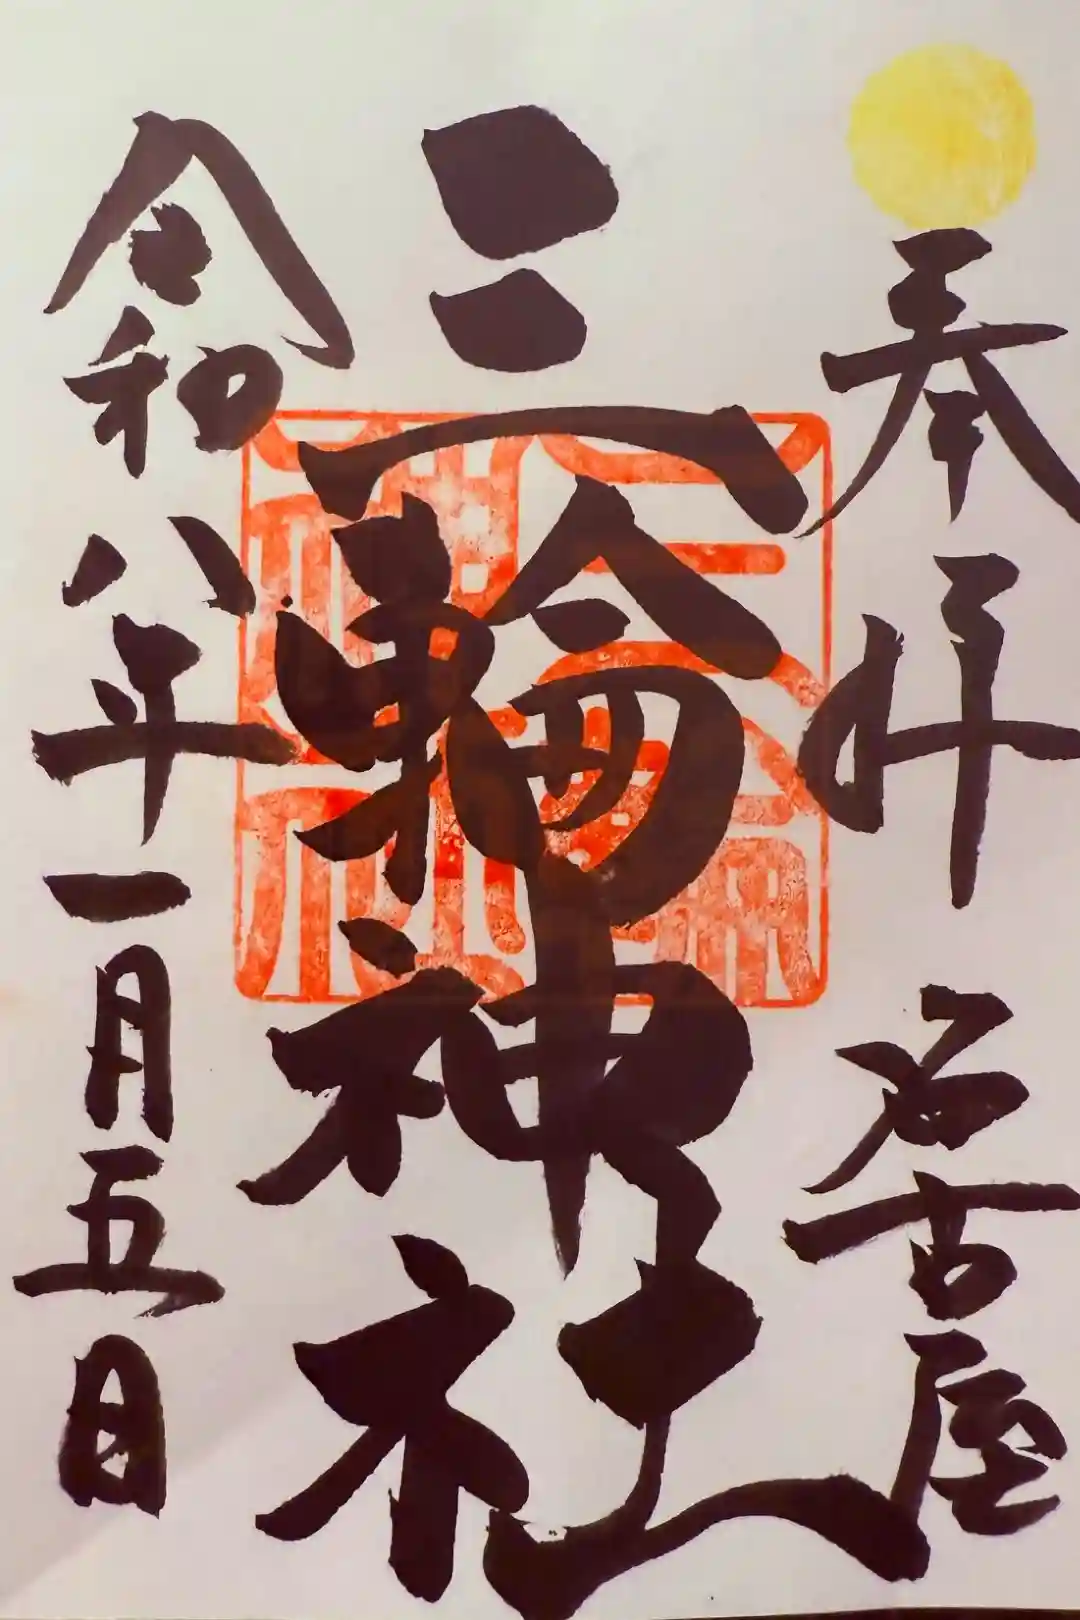 奉拝 名古屋
三輪神社
三輪神社
令和八年一月五日